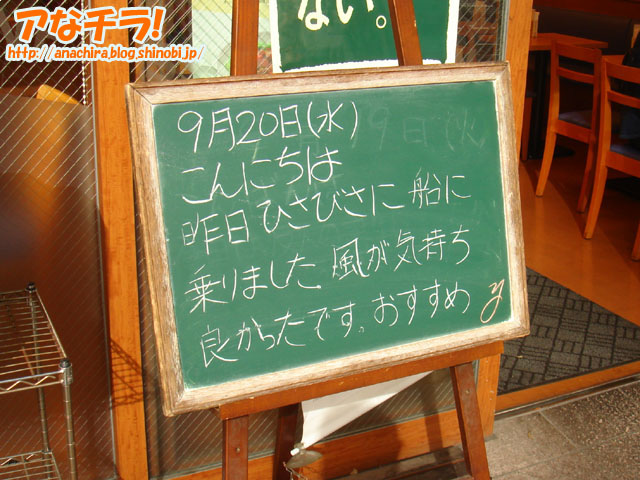 アなチラ!
http://anachira.blog.shinobi.jp/
ない。
9月20日(水)
こんにちは
昨日 ひさびさに 船に
乗りました 風が気持ち
良かったです。おすすめ y